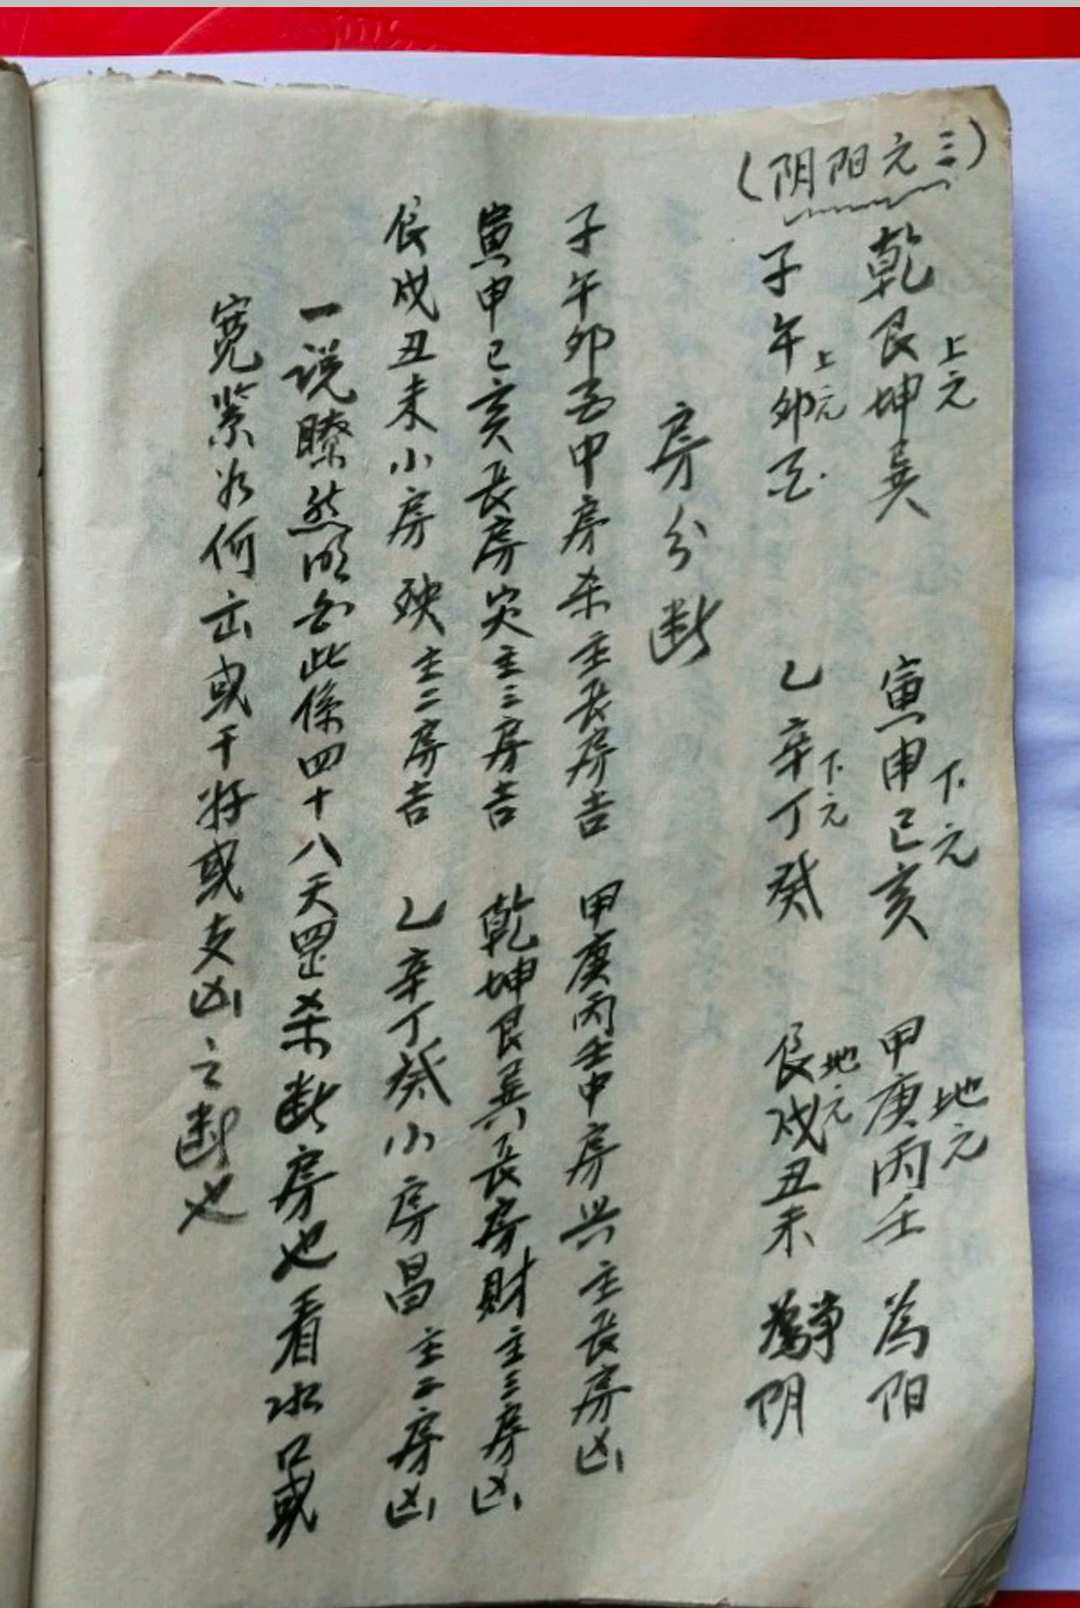 (阴阳元三)
乾艮坤巽 上元 寅申巳亥 下元 甲庚丙壬 地元 为阳
子午卯酉 上元 乙辛丁癸 下元 辰戌丑未 地元 为阴
房分断
子午卯酉中房杀主长房吉 甲庚丙壬中房兴主长房凶
寅申巳亥长房灾主三房吉 乾坤艮巽长房财主三房凶
辰戌丑未小房殃主二房吉 乙辛丁癸小房昌主二房凶
一说瞭然明白此係四十八天罡杀断房也看水口或
宽紧如何出或干好或支凶之断也